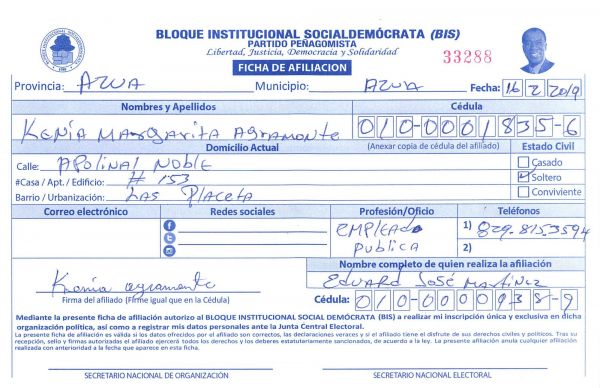 BLOQUE INSTITUCIONAL SOCIALDEMÓCRATA (BIS)
PARTIDO PEÑAGOMISTA
Libertad, Justicia, Democracia y Solidaridad
33288
FICHA DE AFILIACION
Provincia: AZUA Municipio: AZUA Fecha: 16 2 2019
Nombres y Apellidos Cédula
KENIA MARGARITA AGRAMONTE 010-0001835-6
(Anexar copia de cédula del afiliado)
Domicilio Actual Estado Civil
Calle: APOLINAL NOBLE Casado
#Casa / Apt. / Edificio: # 153 Soltero
Barrio / Urbanización: LAS PLACETA Conviviente
Correo electrónico Redes sociales Profesión/Oficio Teléfonos
EMPLEADO 1) 829.815.3594
PUBLICA 2)
Nombre completo de quien realiza la afiliación
Kenia agramonte EDUARD JOSÉ MARTINEZ
Firma del afiliado (Firme igual que en la Cédula) Cédula: 010-0000938-9
Mediante la presente ficha de afiliación autorizo al BLOQUE INSTITUCIONAL SOCIAL DEMÓCRATA (BIS) a realizar mi inscripción única y exclusiva en dicha
organización política, así como a registrar mis datos personales ante la Junta Central Electoral.
La presente ficha de afiliación es válida si los datos ofrecidos por el afiliado son correctos, las declaraciones veraces y si el afiliado tiene el disfrute de sus derechos civiles y políticos. Tras su
recepción, sello y firmas autorizadas el afiliado ejercerá todos los derechos y los deberes estatutariamente sancionados, de acuerdo a la ley. La presente afiliación anula cualquier afiliación
realizada con anterioridad a la fecha que aparece en esta ficha.
SECRETARIO NACIONAL DE ORGANIZACIÓN SECRETARIO NACIONAL ELECTORAL